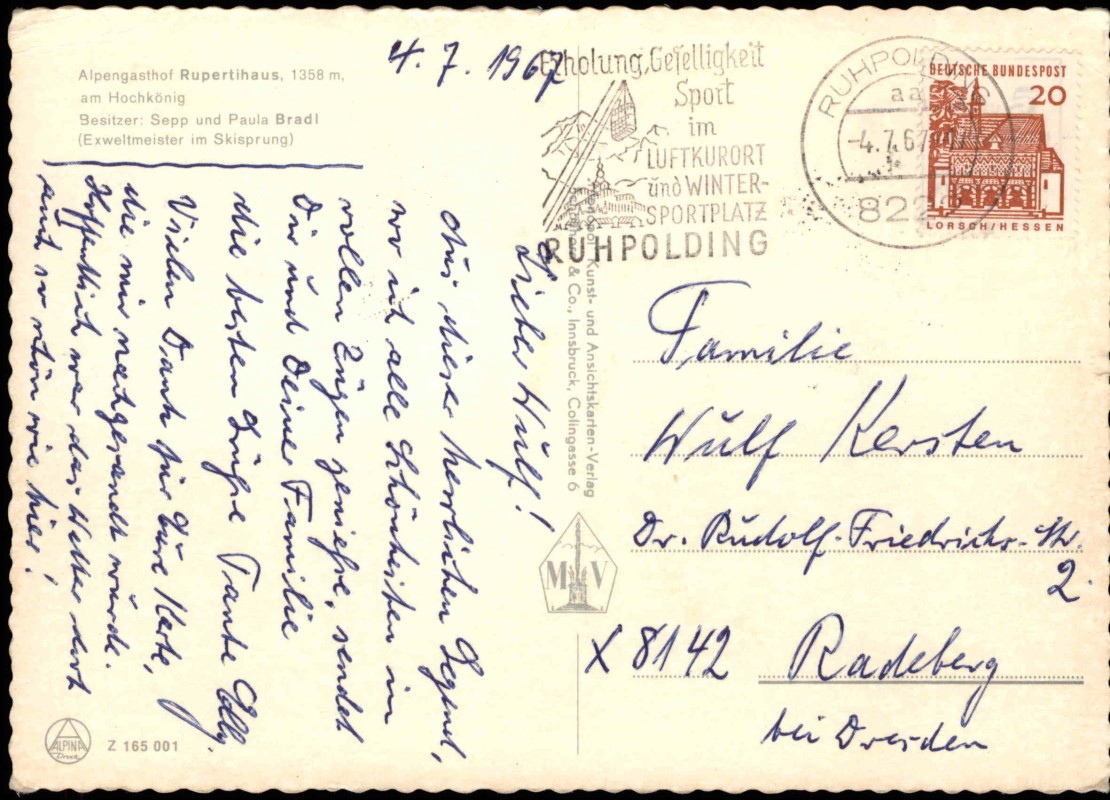 Alpengasthof Rupertihaus, 1358 m,
am Hochkönig
Besitzer: Sepp und Paula Bradl
(Exweltmeister im Skisprung)
4. 7. 1967
Lieber Wulf!
Aus dieser herrlichen Gegend,
wo ich alle Schönheiten in
vollen Zügen genieße, sendet
Dir und Deiner Familie
die besten Grüße Tante Elly.
Vielen Dank für Eure Karte,
die mir nachgesandt wurde.
Hoffentlich war das Wetter dort
auch so schön wie hier!
Erholung, Geselligkeit
Sport
im
LUFTKURORT
und WINTER-
SPORTPLATZ
RUHPOLDING
RUHPOLDING
aa
-4.7.67
822
DEUTSCHE BUNDESPOST
20
LORSCH/HESSEN
Kunst- und Ansichtskarten-Verlag
& Co., Innsbruck, Colingasse 6
M V
Familie
Wulf Kersten
Dr. Rudolf-Friedrichs-Str.
2.
X 8142 Radeberg
bei Dresden
ALPINA
Druck
Z 165 001